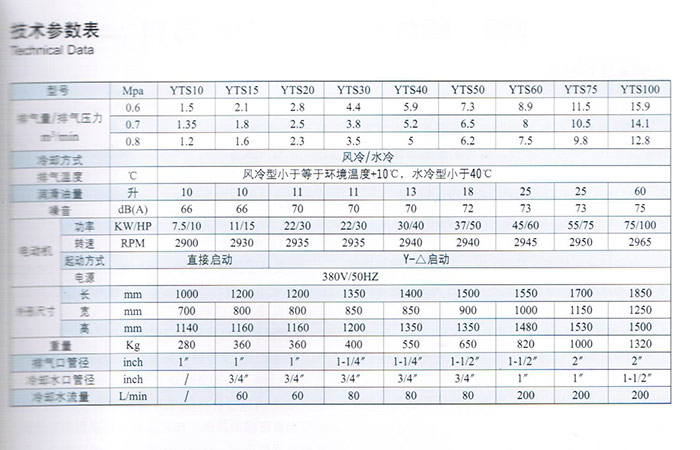 技术参数表
Technical Data
型号 Mpa YTS10 YTS15 YTS20 YTS30 YTS40 YTS50 YTS60 YTS75 YTS100
排气量/排气压力 m³/min 0.6 1.5 2.1 2.8 4.4 5.9 7.3 8.9 11.5 15.9
0.7 1.35 1.8 2.5 3.8 5.2 6.5 8 10.5 14.1
0.8 1.2 1.6 2.3 3.5 5 6.2 7.5 9.8 12.8
冷却方式 风冷/水冷
排气温度 ℃ 风冷型小于等于环境温度+10℃, 水冷型小于40℃
润滑油量 升 10 10 11 11 13 18 25 25 60
噪音 dB(A) 66 66 70 70 70 72 73 73 75
电动机 功率 KW/HP 7.5/10 11/15 22/30 22/30 30/40 37/50 45/60 55/75 75/100
转速 RPM 2900 2930 2935 2935 2940 2940 2945 2950 2965
起动方式 直接启动 Y-△启动
电源 380V/50HZ
外形尺寸 长 mm 1000 1200 1200 1350 1400 1500 1550 1700 1850
宽 mm 700 800 800 850 850 900 1000 1150 1250
高 mm 1140 1160 1160 1200 1350 1350 1480 1530 1500
重量 Kg 280 360 360 400 550 650 820 1000 1320
排气口管径 inch 1″ 1″ 1″ 1-1/4″ 1-1/4″ 1-1/2″ 1-1/2″ 2″ 2″
冷却水口管径 inch / 3/4″ 3/4″ 3/4″ 3/4″ 3/4″ 1″ 1″ 1-1/2″
冷却水流量 L/min / 60 60 80 80 80 200 200 200